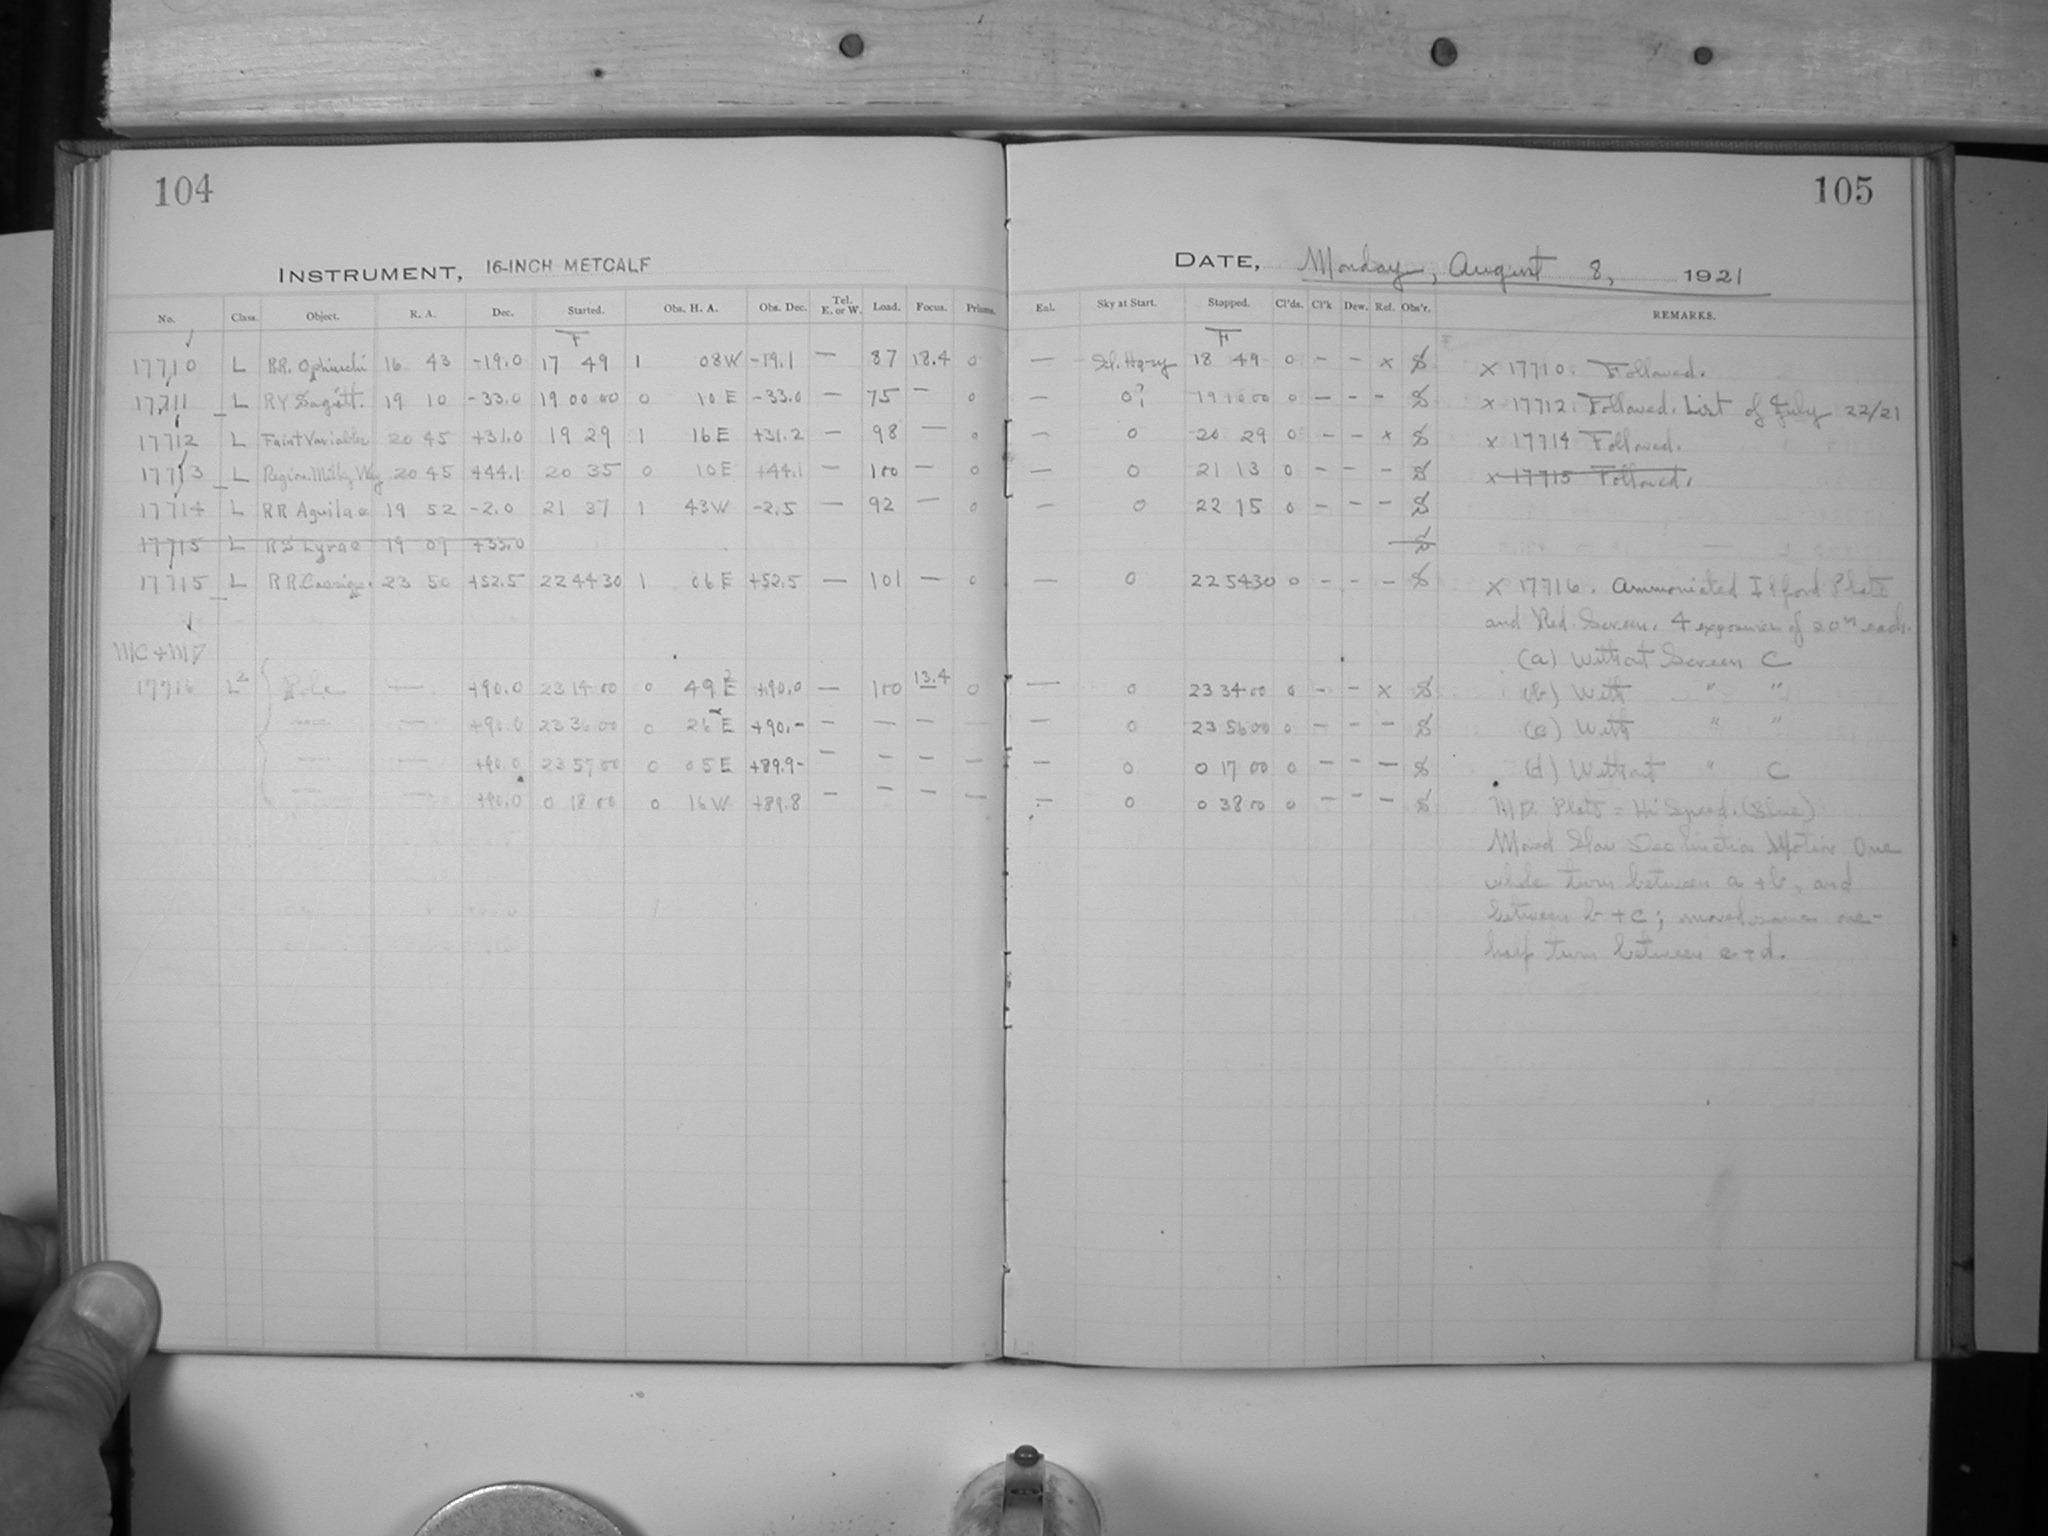 104
INSTRUMENT, 16-INCH METCALF
No. Class. Object. R. A. Dec. Started. Obs. H. A. Obs. Dec. Tel. E. or W. Load. Focus. Prisms.
F
17710 L RR. Ophiuchi 16 43 -19.0 17 49 1 08W -19.1 — 87 18.4 0
17711 L RY Sagitt. 19 10 -33.0 19 00 00 0 10 E -33.0 — 75 — 0
17712 L Faint Variables 20 45 +31.0 19 29 1 16 E +31.2 — 98 — 0
17713 L Region Milky Way 20 45 +44.1 20 35 0 10 E +44.1 — 100 — 0
17714 L RR Aquilae 19 52 -2.0 21 37 1 43W -2.5 — 92 — 0
17715 L RS Lyrae 19 09 +33.0
17715 L RR. Cassiop. 23 50 +52.5 22 44 30 1 06 E +52.5 — 101 — 0
MC + MD
17716 L2 Pole — +90.0 23 14 00 0 49 E +90.0 — 100 13.4 0
— — +90.0 23 36 00 0 26 E +90.- — — — —
— — +90.0 23 57 00 0 05 E +89.9- — — — —
— — +90.0 0 18 00 0 16 W +89.8 — — — —
105
DATE, Monday, August 8, 1921
Sky at Start. Stopped. Cl'ds. Cl'k Dew. Ref. Obs'r. REMARKS.
F
— Sl. Hazy 18 49 0 - - x S x 17710. Followed.
— 0? 19 10 00 0 — — - S x 17712. Followed. List of July 22/21
— 0 20 29 0 - - x S x 17714 Followed.
— 0 21 13 0 - - - S x 17715 Followed.
— 0 22 15 0 - - - S
S
— 0 22 54 30 0 - - - S x 17716. Ammoniated Ilford Plate
and Red. Screen. 4 exposures of 20m each.
(a) Without Screen C
— 0 23 34 00 0 - - x S (b) With " "
— 0 23 56 00 0 - - - S (c) With " "
— 0 0 17 00 0 - - - S (d) Without " C
— 0 0 38 00 0 - - - S MD. Plate = Hi Speed. (Blue)
Moved Slow Declination Motion One
whole turn between a + b, and
between b + c; moved same one-
half turn between c + d.